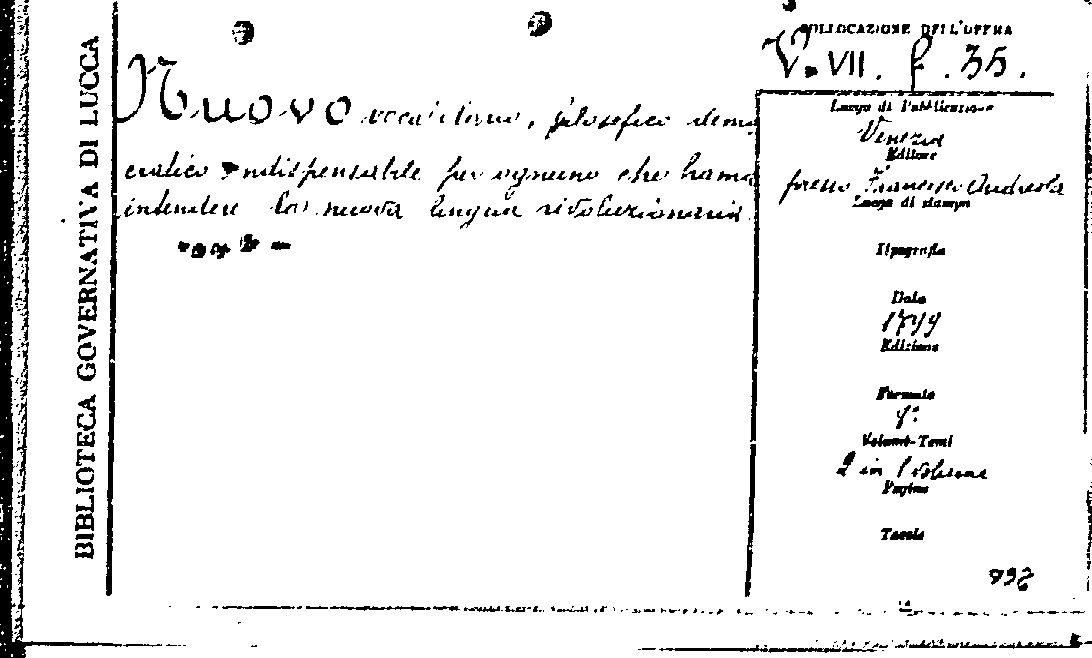 BIBLIOTECA GOVERNATIVA DI LUCCA
Nuovo vocabolario, filosofico demo
cratico indispensabile per ognuno che brama
intendere la nuova lingua rivoluzionaria
COLLOCAZIONE DELL'OPERA
V. VII. f. 35.
Luogo di Pubblicazione
Venezia
Editore
presso Francesco Andreola
Luogo di stampa
Tipografia
Data
1799
Edizione
Formato
8°
Volumi-Tomi
2 in 1 volume
Pagine
Tavole